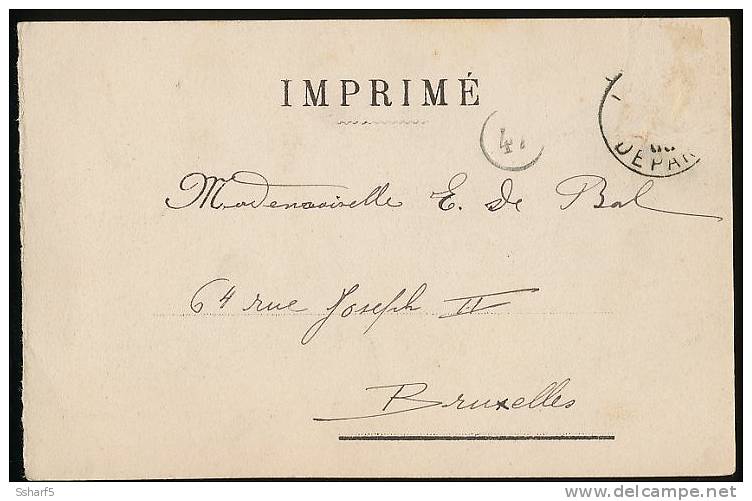 IMPRIMÉ
41
DEPAR
Mademoiselle E. de Bal
64 rue Joseph II
Bruxelles
Ssharf5
delcampe.net